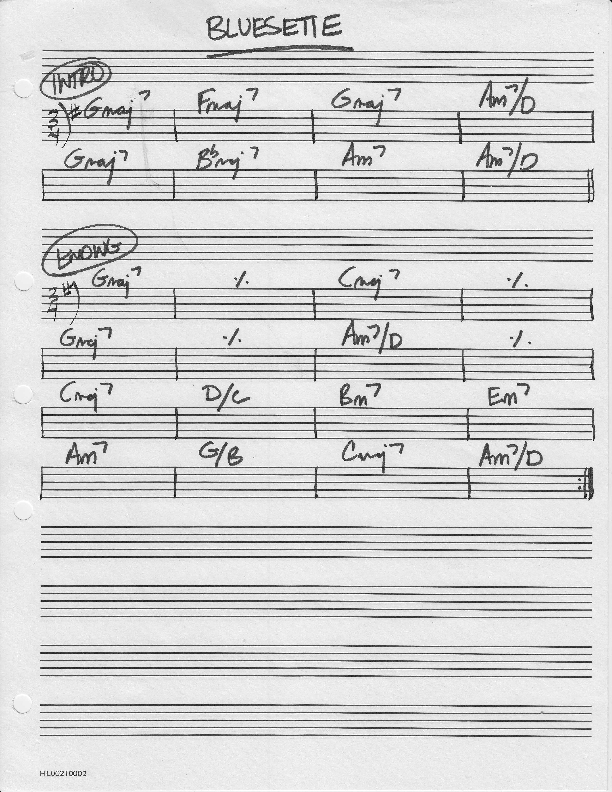 BLUESETTE
INTRO
3/4 # Gmaj7 Fmaj7 Gmaj7 Am7/D
Gmaj7 Bbmaj7 Am7 Am7/D
ENDING
3/4 # Gmaj7 ٪ Cmaj7 ٪
Gmaj7 ٪ Am7/D ٪
Cmaj7 D/C Bm7 Em7
Am7 G/B Cmaj7 Am7/D
HL00210002